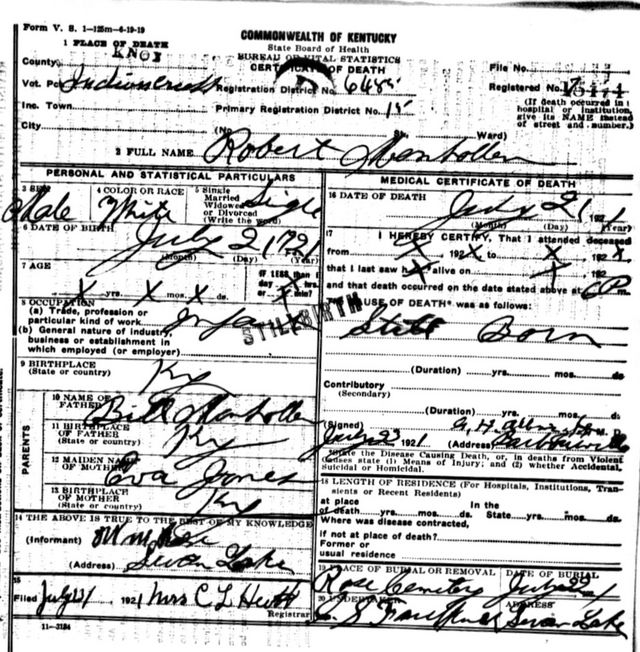 Form V. S. 1—125m—6-19-19
COMMONWEALTH OF KENTUCKY
State Board of Health
BUREAU OF VITAL STATISTICS
CERTIFICATE OF DEATH
1 PLACE OF DEATH
KNOX
County
File No.
Vot. Pct.
Registration District No. 6485
Registered No.
Inc. Town
Primary Registration District No. 15
(If death occurred in a hospital or institution, give its NAME instead of street and number.)
City (No. St. Ward)
2 FULL NAME Robert
PERSONAL AND STATISTICAL PARTICULARS
3 SEX
Male
4 COLOR OR RACE
White
5 Single
Married
Widowed
or Divorced
(Write the word)
Single
6 DATE OF BIRTH
July 21 1921
(Month) (Day) (Year)
7 AGE
IF LESS than 1
X yrs. X mos. X ds.
8 OCCUPATION
(a) Trade, profession or
particular kind of work
(b) General nature of industry,
business or establishment in
which employed (or employer)
STILLBIRTH
9 BIRTHPLACE
(State or country)
Ky
PARENTS
10 NAME OF
FATHER
Bill
11 BIRTHPLACE
OF FATHER
(State or country)
Ky
12 MAIDEN NAME
OF MOTHER
Eva Jones
13 BIRTHPLACE
OF MOTHER
(State or country)
Ky
14 THE ABOVE IS TRUE TO THE BEST OF MY KNOWLEDGE
(Informant)
(Address) Swan Lake
15
Filed July 1921 Mrs C L
Registrar
11—3184
MEDICAL CERTIFICATE OF DEATH
16 DATE OF DEATH
July 21 1921
(Month) (Day) (Year)
17
I HEREBY CERTIFY, That I attended deceased
from X 192X to X 192X
that I last saw h alive on X 192
and that death occurred on the date stated above at P m.
CAUSE OF DEATH* was as follows:
Still Born
(Duration) yrs. mos. ds.
Contributory
(Secondary)
(Duration) yrs. mos. ds.
(Signed) M. D.
July 23 1921 (Address) Barbourville
*State the Disease Causing Death, or, in deaths from Violent
Causes state (1) Means of Injury; and (2) whether Accidental,
Suicidal or Homicidal.
18 LENGTH OF RESIDENCE (For Hospitals, Institutions, Transients or Recent Residents)
at place In the
of death yrs. mos. ds. State yrs. mos. ds.
Where was disease contracted,
if not at place of death?
Former or
usual residence
19 PLACE OF BURIAL OR REMOVAL DATE OF BURIAL
Rose Cemetery July
20 UNDERTAKER ADDRESS
Swan Lake